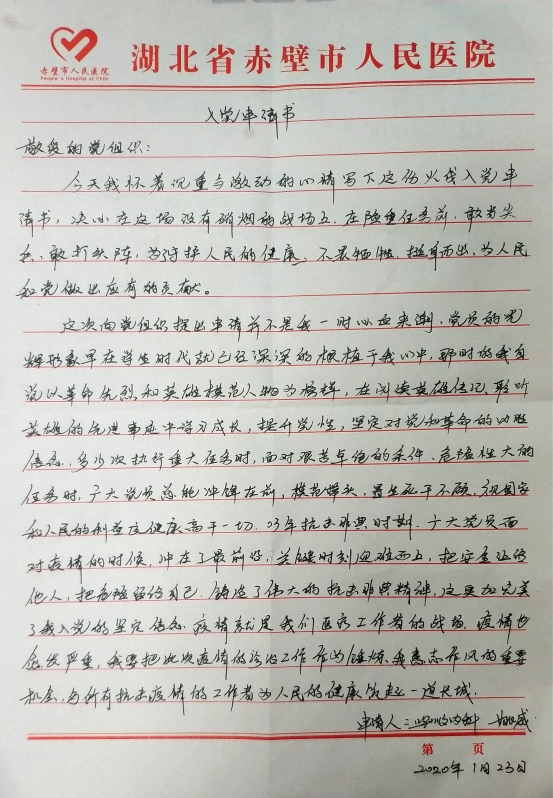 赤壁市人民医院
People's Hospital of Chibi
湖北省赤壁市人民医院
入党申请书
敬爱的党组织：
今天我怀着沉重与激动的心情写下这份火线入党申
请书，决心在这场没有硝烟的战场上，在险重任务前，敢当尖
兵，敢打头阵，为守护人民的健康，不畏牺牲，挺身而出，为人民
和党做出应有的贡献。
这次向党组织提出申请并不是我一时心血来潮，党员的光
辉形象早在学生时代就已经深深的根植于我心中，那时的我自
说以革命先烈和英雄模范人物为榜样，在阅读英雄传记、聆听
英雄的先进事迹中学习成长，提升党性，坚定对党和革命的
信念，多少次执行重大任务时，面对艰苦卓绝的条件、危险性大的
任务时，广大党员总能冲锋在前，模范带头，置生死于不顾，视国家
和人民的利益及健康高于一切，03年抗击非典时期，广大党员面
对疫情的时候，冲在了最前沿，关键时刻迎难而上，把安全让给
他人，把危险留给自己，铸造了伟大的抗击非典精神，这更加完美
了我入党的坚定信念，疫情就是我们医疗工作者的战场，疫情也
愈发严重，我要把此次疫情的诊治工作作为锤炼我意志作风的重要
机会，与所有抗击疫情的工作者为人民的健康筑起一道长城。
申请人：呼吸内科
第 页
2020年1月23日